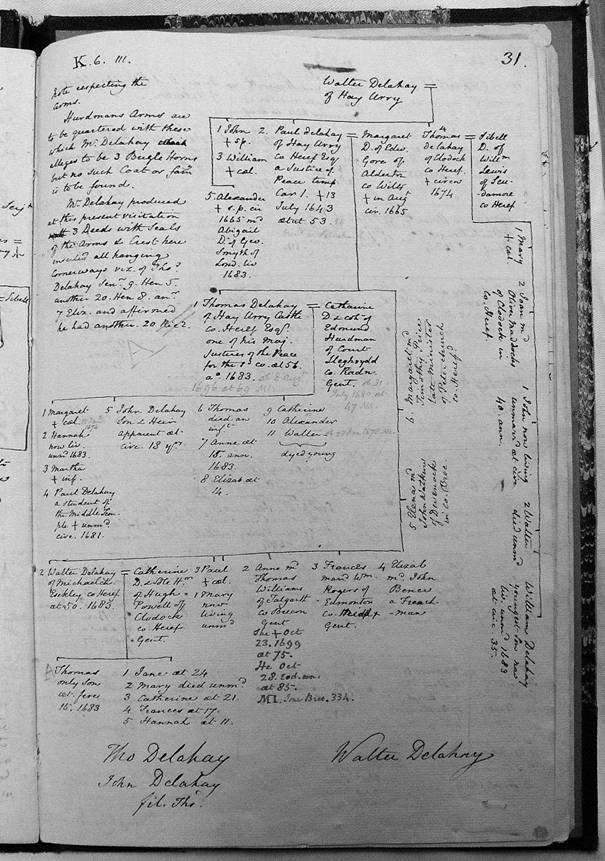 K. 6. III.
31.
Note respecting the
Arms.
Hurdmans Arms are
to be quartered with these
which Mr. Delahay
alleges to be 3 Bugle Horns
but no such Coat or [sic] 
is to be found.
Mr. Delahay produced
at this present visitation
3 Deeds with Seals
of the Arms & Crest here
all hanging
Cornerways viz. of Thos.
Delahay Senr. 9. Hen 5.
another 20. Hen 8. anr.
7 Eliz. and affirmed
he had another. 20 Ric 2.
Walter Delahay =
of Hay Arry
1 John
+ s.p.
3 William
+ cal.
5. Alexander
+ s.p. cir
1665 md
Abigail
Dr. of Geo.
Smyth of
Lond. liv
1683.
2. Paul Delahay =
of Hay Arry
co Heref Esq
a Justice of
Peace temp
Car 1. + 13
July 1643
at 53.
Margaret
D. of Edw.
Gore of
Alderton
co Wilts
+ in Augt
cir. 1665
4
Thomas =
Delahay
of Clodock
co Heref
+ circa
1674
Sibell
D. of
Willm
Lewis
of
co Heref
1 Mary
+ cal.
2 Joan md
Maddocks
of Clodock in
co. Heref.
1 John now living
unmarrd at cir
40. ann.
2 Walter
died unmd
William Delahay
younger son now
liv unmd 1683
at circ. 35.
1 Thomas Delahay =
of Hay Arry Castle
co. Heref Esqr.
one of his Maj.
Justices of the Peace
for the sd co. at 56.
ao. 1683.
Catharine
D & coh of
Edmund
Hurdman
of Court
Lleghrydd
co Radn.
Gent.
6. Margaret md
Timothy Price
late Minister
of Peterchurch
co Herefd
5 Elena md
John Watkins
of
in co. Brec
1 Margaret
+ cal.
2 Hannah
now liv
unmd 1683.
3 Martha
+ inf.
4 Paul Delahay
a student of
the Middle Tem-
ple + unmd
circ. 1681.
5 John Delahay
Son & Heir
apparent at
circ. 18 yrs.
6 Thomas
died an
inft
7 Anne at
10. ann.
1683.
8 Elizab at
4.
9 Catherine
10 Alexander
11 Walter
dyed young
2 Walter Delahay =
of Michaelch
Eskley co Heref
at 50. 1683.
Catherine
D & one Hr.
of Hugh
Powell of
Clodock
co Heref.
Gent.
3 Paul
+ cal.
1 Mary
now
living
unmd
2 Anne m
Thomas
Williams
of Talgarth
co Brecon
Gent
She + Oct
23. 1699
at 75.
He Oct
28. eod. ann
at 85.
MI. Jones Brec. 334.
3 Frances
mard Wm.
Rogers of
Edmonton
co.
Gent.
4 Elizab
m. John
Bence
a French
-man
Thomas
only Son
at. fere
15. 1683
1 Jane at 24
2 Mary died unmd
3 Catherine at 21.
4 Frances at 17.
5 Hannah at 11.
Tho Delahay
Walter Delahay
John Delahay
fil. Tho.